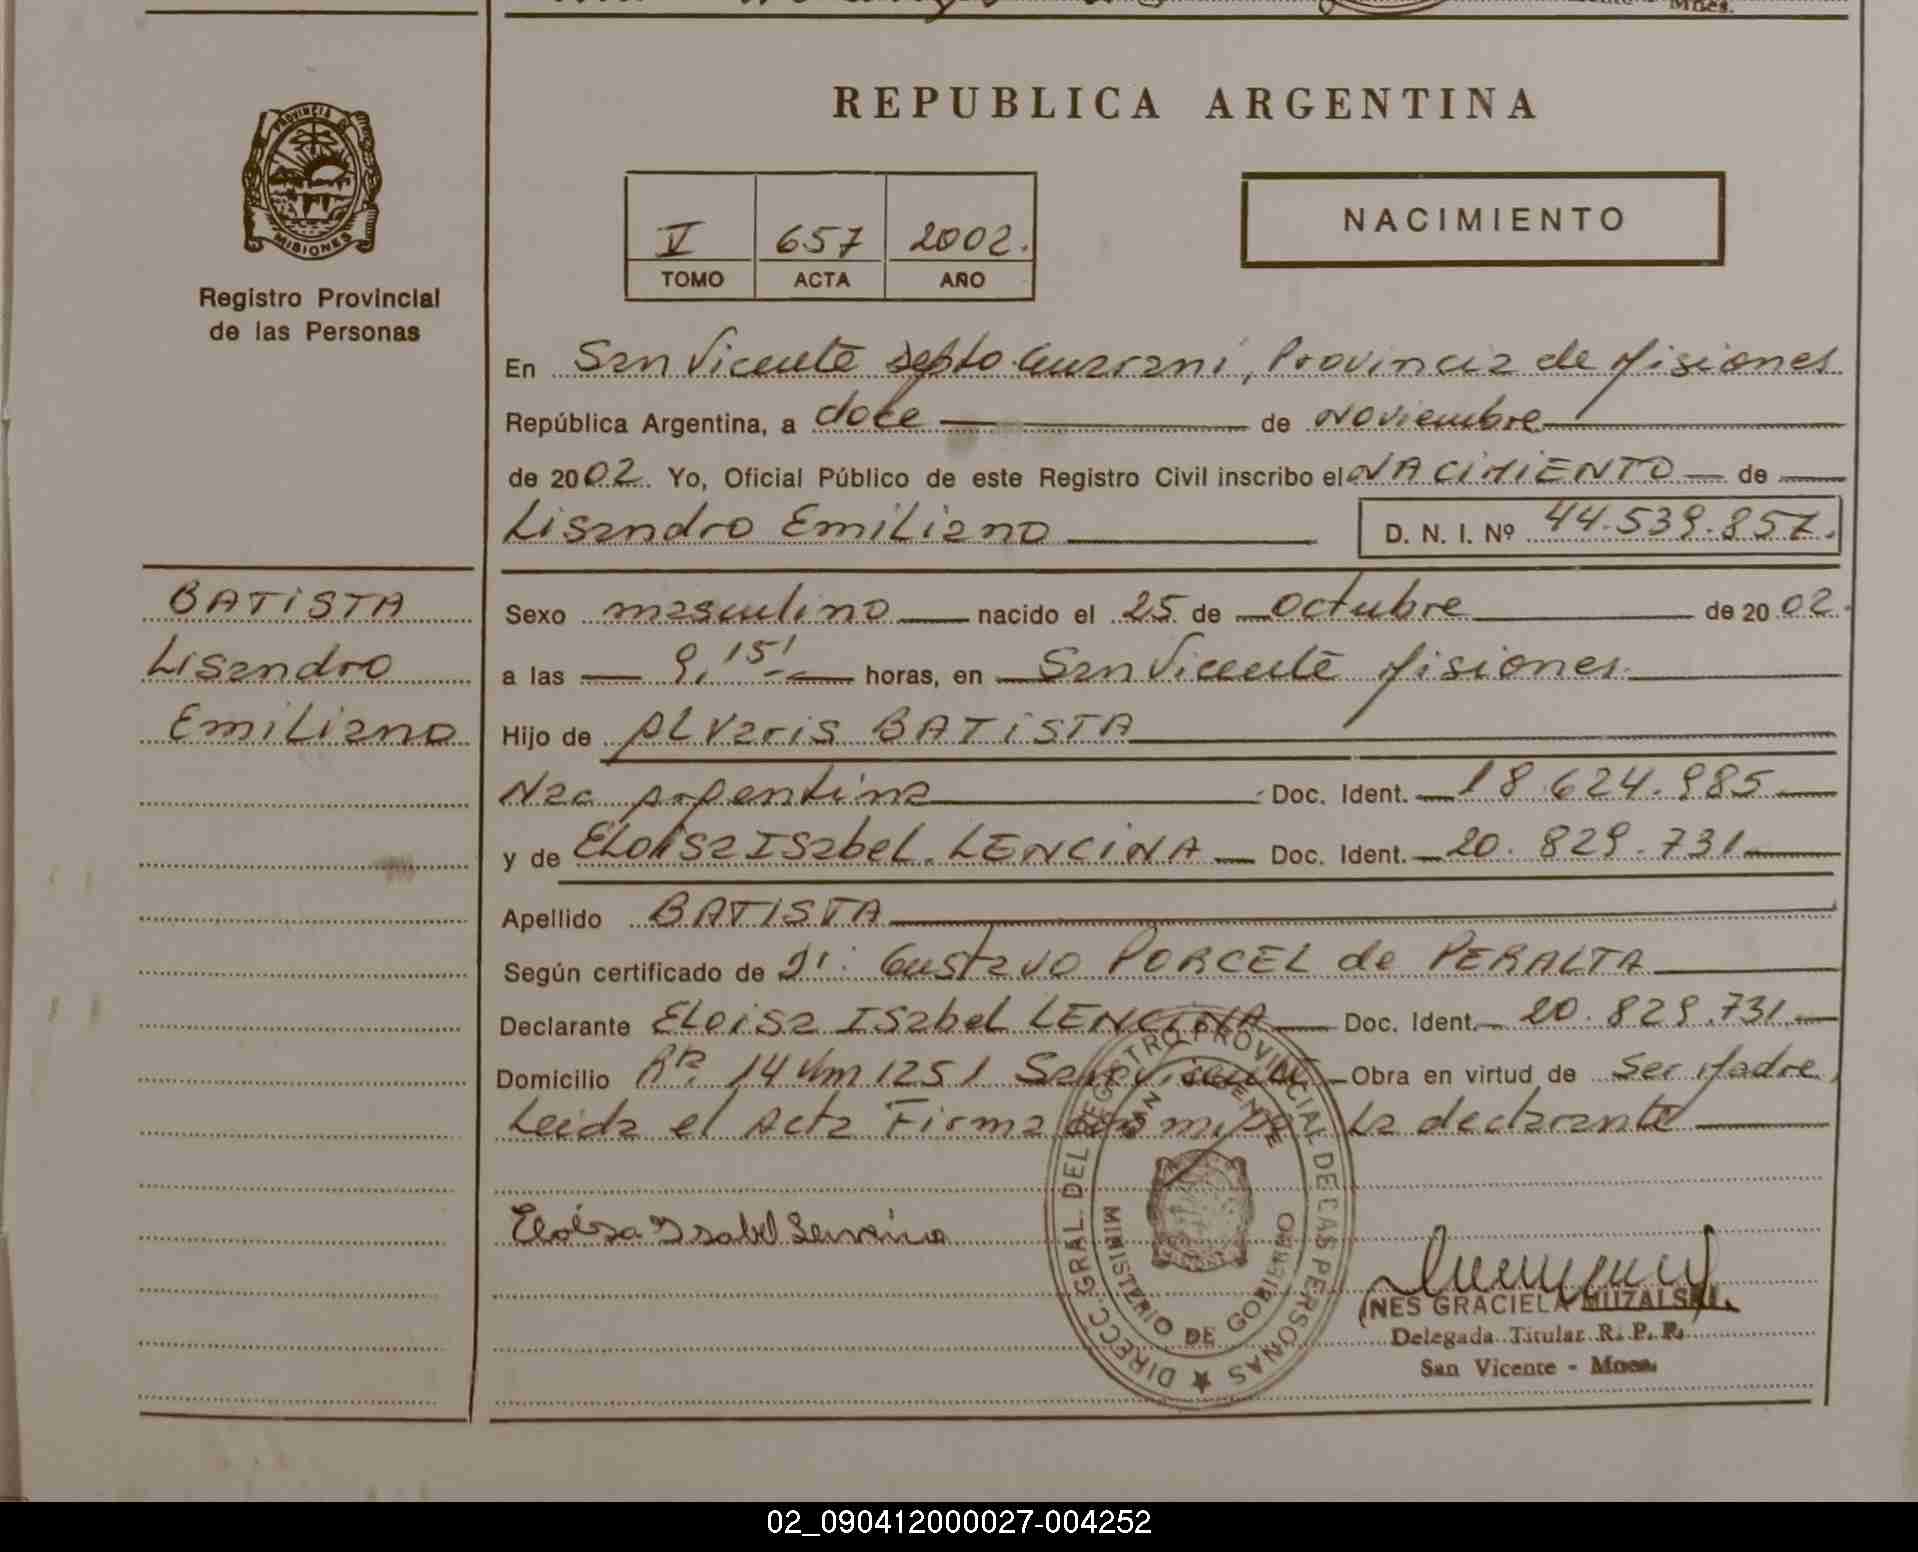 Mnes.
REPUBLICA ARGENTINA
PROVINCIA DE
MISIONES
Registro Provincial
de las Personas
V 657 2002.
TOMO ACTA AÑO
NACIMIENTO
En San Vicente Depto Guarani, Provincia de Misiones
República Argentina, a doce de Noviembre
de 2002. Yo, Oficial Público de este Registro Civil inscribo el NACIMIENTO de
Lisandro Emiliano D. N. I. Nº 44.539.857.
BATISTA
Lisandro
Emiliano
Sexo masculino nacido el 25 de octubre de 2002.
a las 9,15' horas, en San Vicente Misiones
Hijo de ALVaris BATISTA
Nac Argentina Doc. Ident. 18.624.985
y de ELoisa ISabeL LENCINA Doc. Ident. 20.829.731
Apellido BATISTA
Según certificado de Gustavo PORCEL de PERALTA
Declarante ELoisa ISabel LENCINA Doc. Ident. 20.829.731
Domicilio 14 Km 1251 San Vicente Obra en virtud de ser Madre
Leida el Acta Firma La declarante
Eloisa Ysabel Lencina
DIRECC. GRAL. DEL REGISTRO PROVINCIAL DE LAS PERSONAS
SAN VICENTE
MINISTERIO DE GOBIERNO
INES GRACIELA MUZALSKI
Delegada Titular R. P. P.
San Vicente - Mnes.
02_090412000027-004252